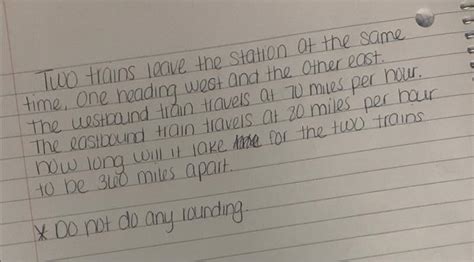 Two trains leave the station at the same
time, One heading west and the other east.
The westbound train travels at 70 miles per hour.
The eastbound train travels at 20 miles per hour
how long will it take for the two trains
to be 360 miles apart.
* Do not do any rounding.